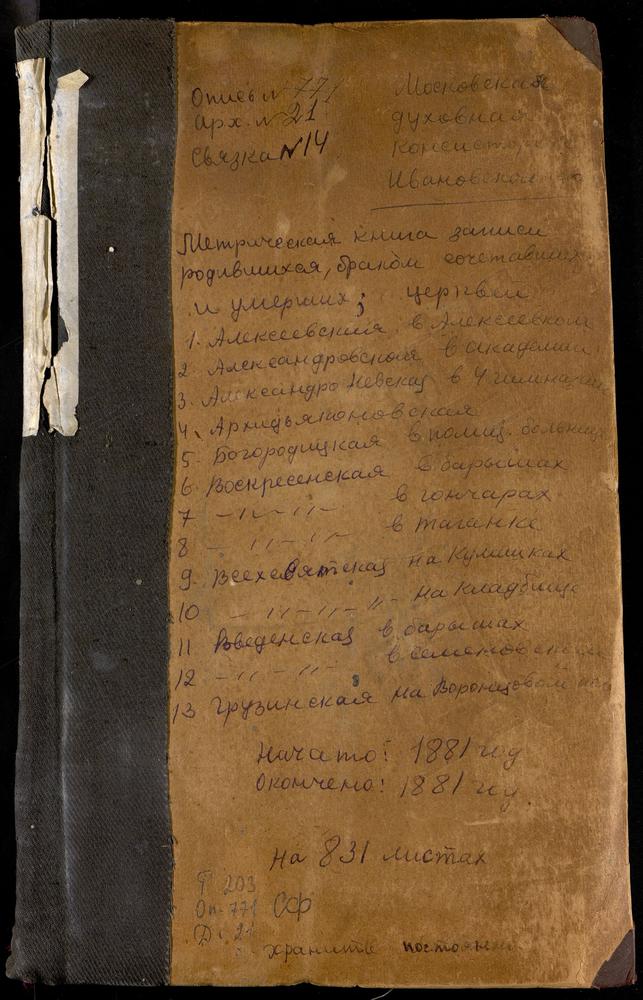 Опись № 771
Арх. № 21
Связка № 14
Московская
духовная
Ивановской
Метрическая книга записи
родившихся, браком сочетавших
и умерших; церквей
1. Алексеевский в Алексеевском
2 Александровской в академии
3. Александро Невская в 4 гимназии
4. Архидьяконовская
5 Богородицкая в полиц. больнице
6 Воскресенская в барышах
7 -"- -"- в гончарах
8 - "- "- в таганке
9. Всехсвятская на Кулишках
10 - "- "- "- на кладбище
11 Введенская в барышах
12 -"- "- в семеновском
13 Грузинская на Воронцовом
Начато: 1881 год
Окончено: 1881 год
На 831 листах
Ф 203
Оп. 771
Д. 21
СФ
хранить постоянно